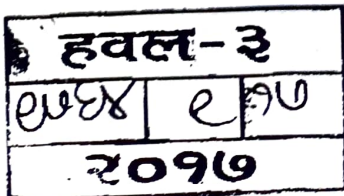 हवल-३
९७६४ ९ १७
२०१७